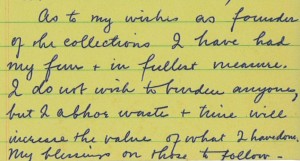 As to my wishes as founder
of the collections I have had
my fun + in fullest measure.
I do not wish to burden anyone,
but I abhor waste + time will
increase the value of what I have done.
My blessings on those to follow -